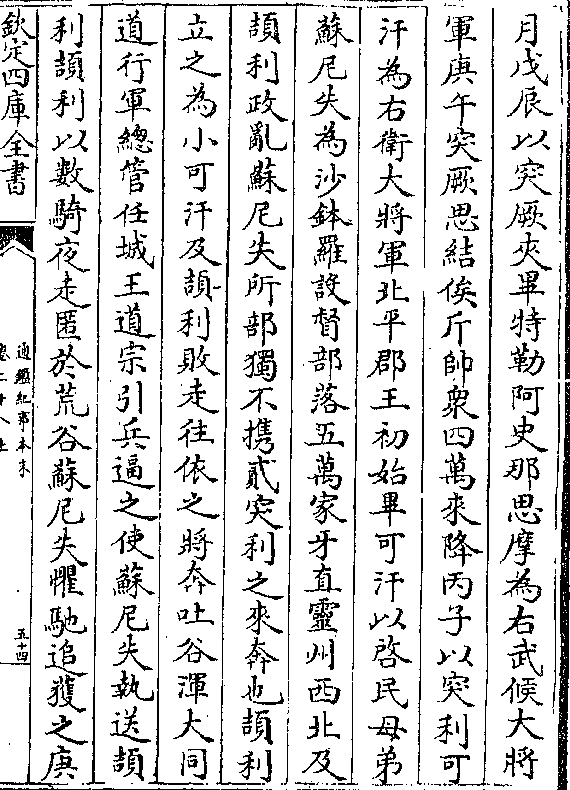 月戊辰以突厥夾畢特勒阿史那思摩為右武候大將
軍庚午突厥思結俟斤帥衆四萬來降丙子以突利可
汗為右衛大將軍北平郡王初始畢可汗以啓民母弟
蘇尼失為沙鉢羅設督部落五萬家牙直靈州西北及
頡利政亂蘇尼失所部獨不携貳突利之來奔也頡利
立之為小可汗及頡利敗走往依之將奔吐谷渾大同
道行軍總管任城王道宗引兵逼之使蘇尼失執送頡
利頡利以數騎夜走匿於荒谷蘇尼失懼馳追獲之庚
欽定四庫全書
通鑑紀事本末
五十四